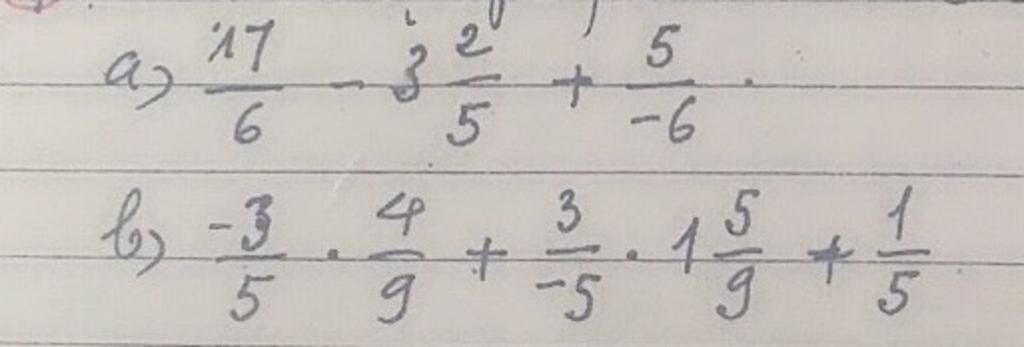 a) 17/6 - 3 2/5 + 5/-6 .
b) -3/5 . 4/9 + 3/-5 . 1 5/9 + 1/5